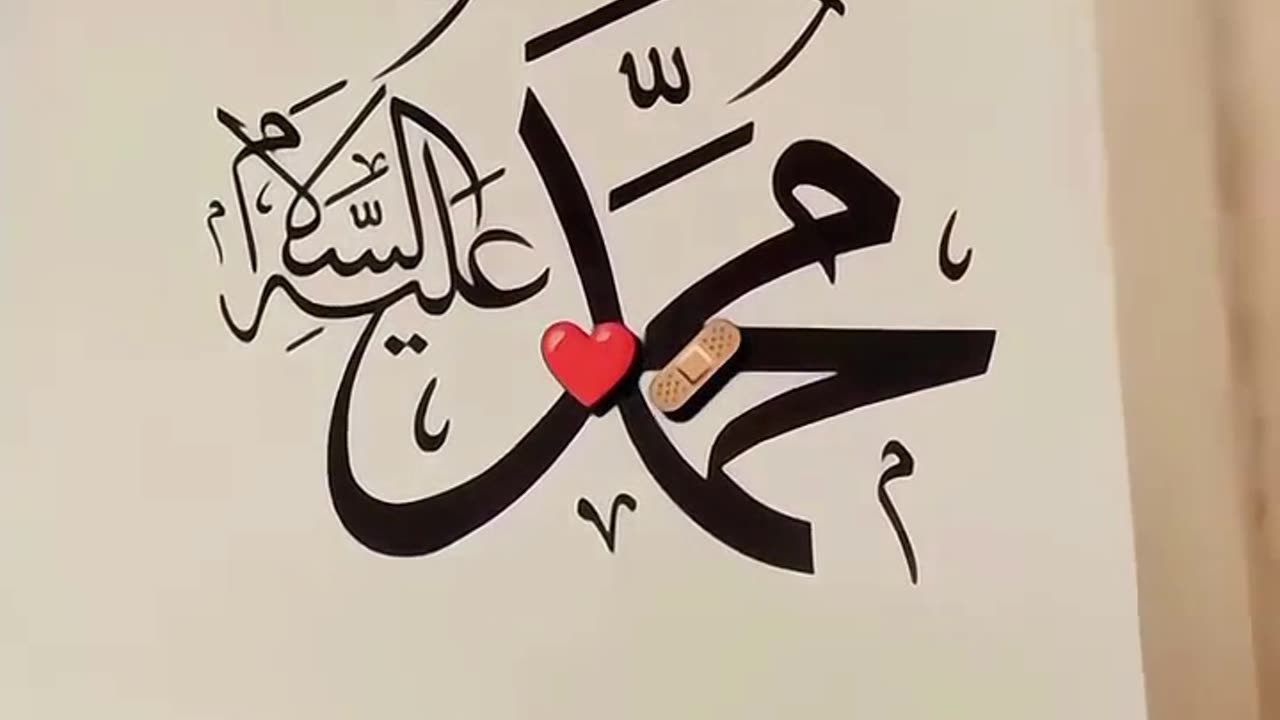 محمّد
عليه السّلام